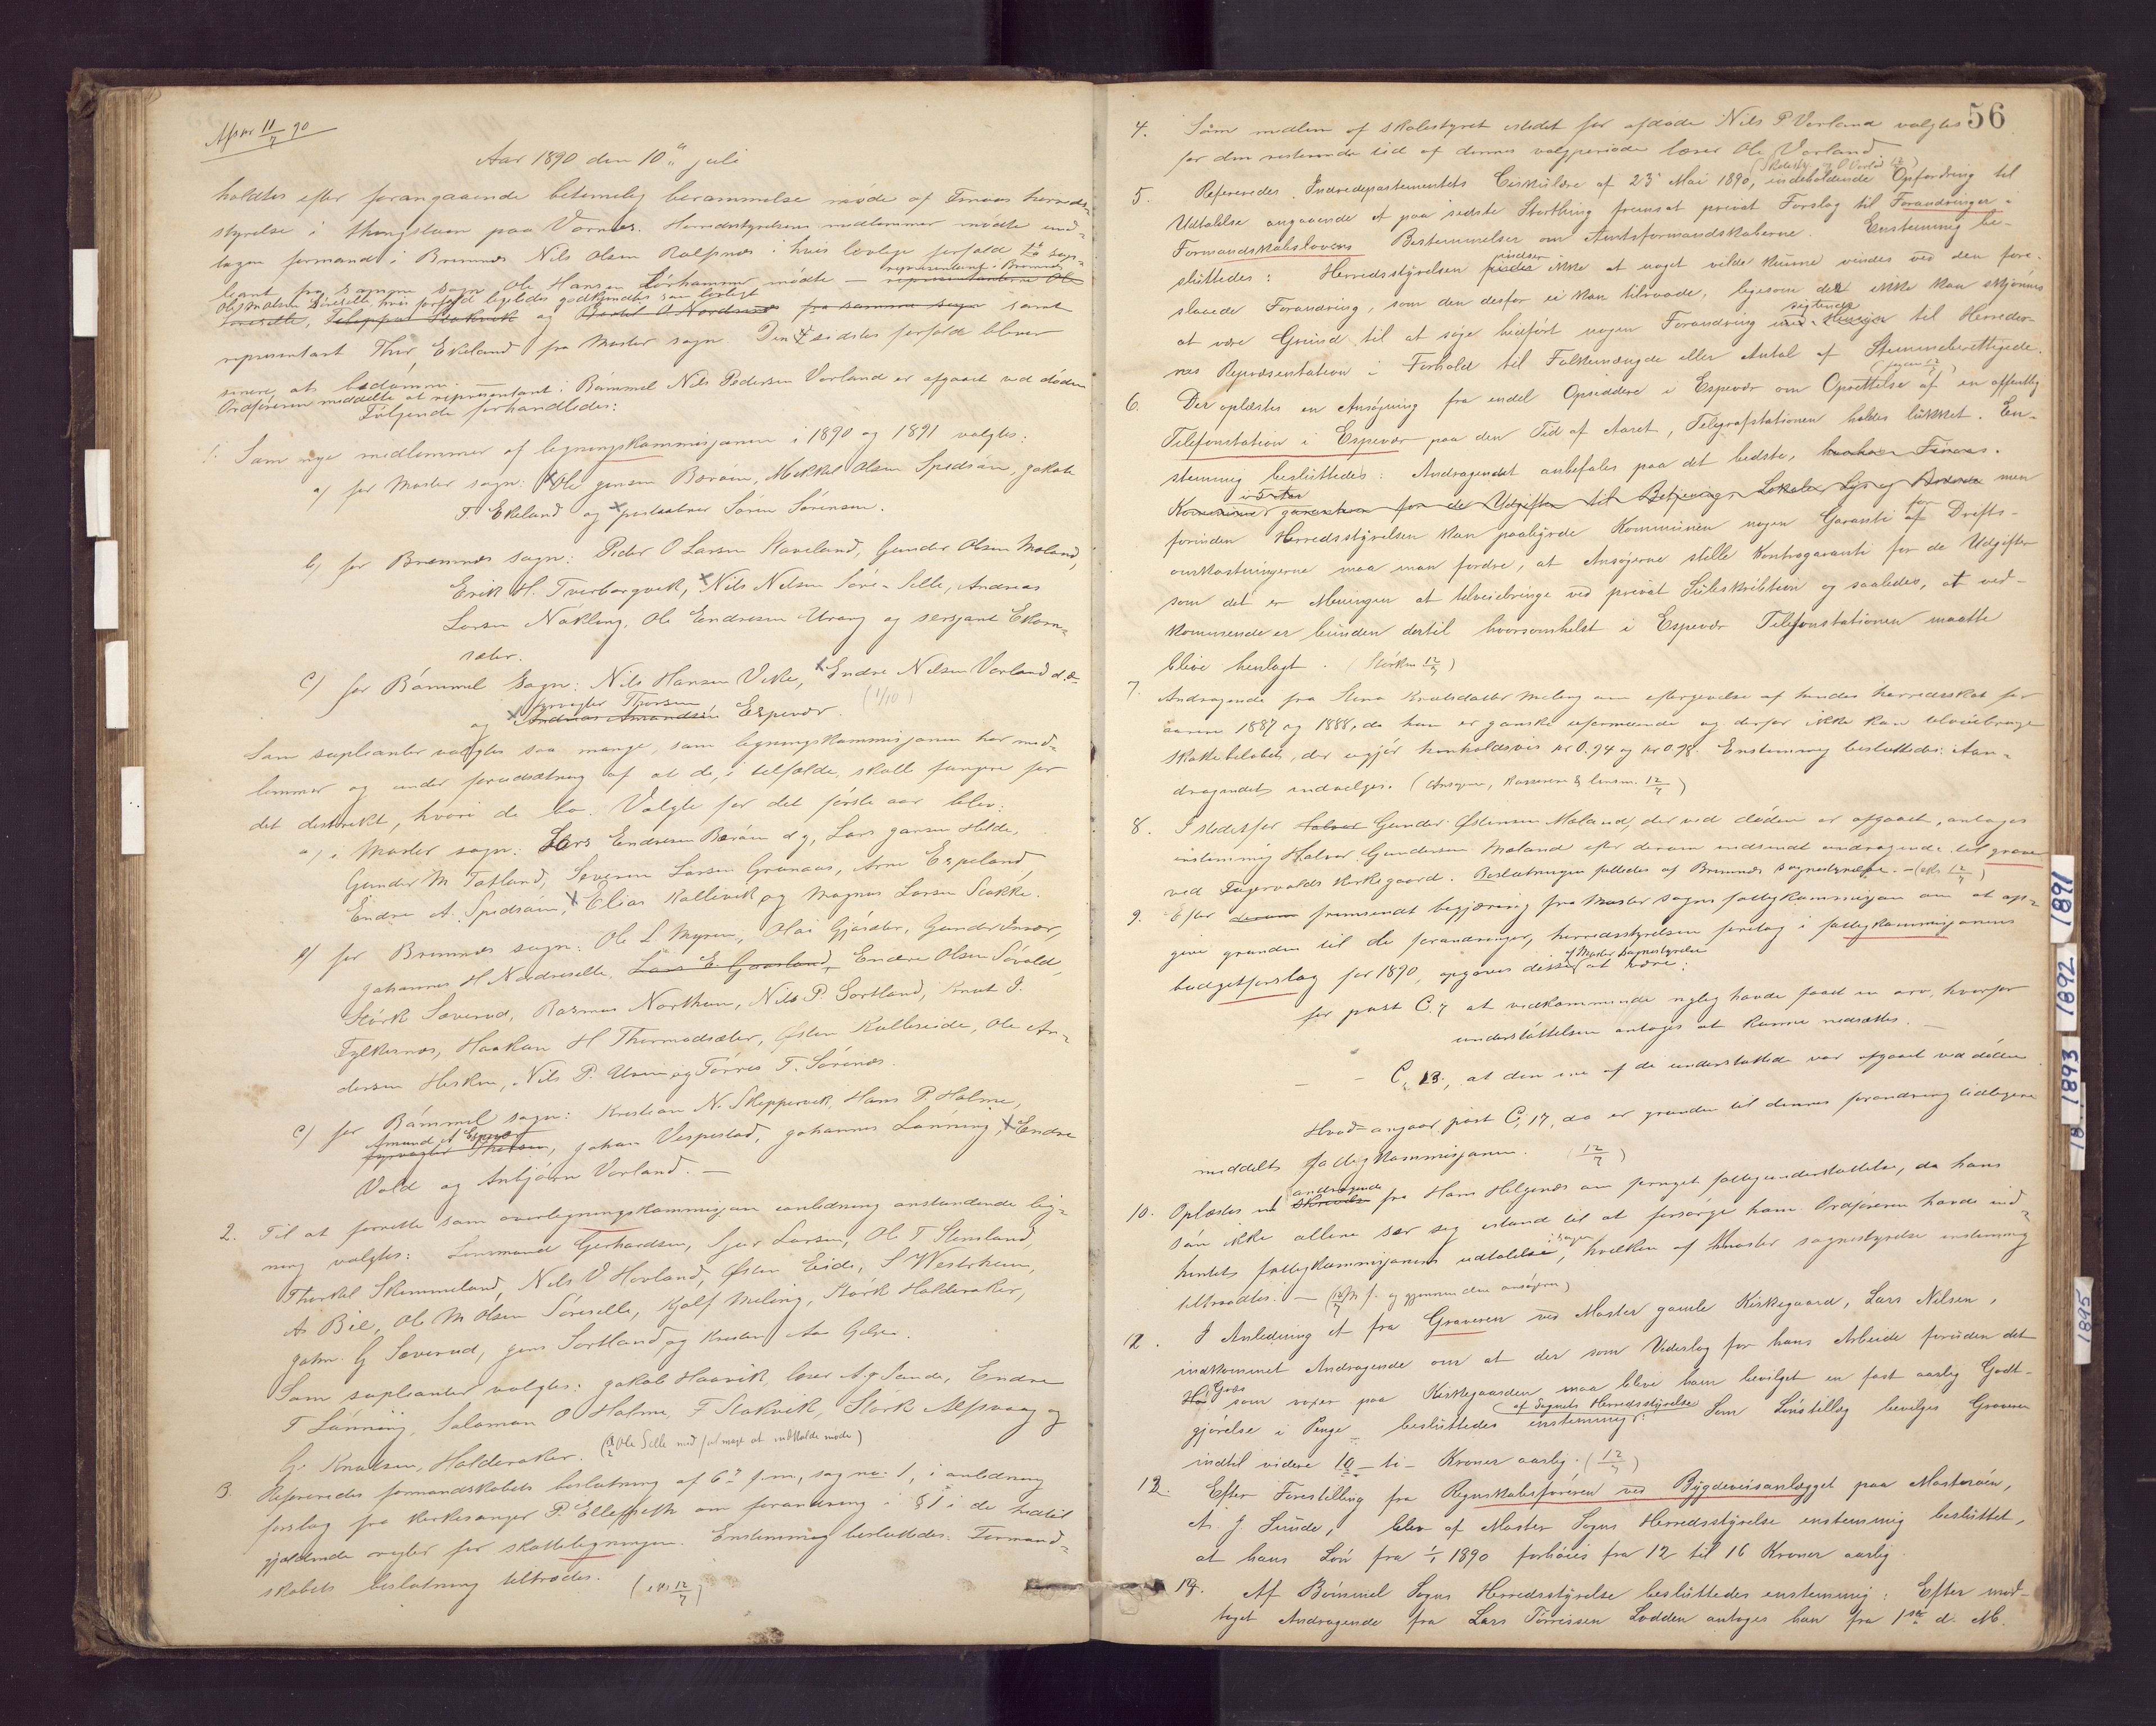 Afskr 11/7 90
Aar 1890 den 10de juli
holdtes efter forangaaende betimelig berammelse møde af Finnaas herreds-
styrelse i thingstuen paa Vornes. Herredsstyrelsens medlemmer mødte und-
tagen formand i Bremnes Nils Olsen Rolfsnes i hvis lovlige forfald 1ste sup-
leant fra samme sogn Ole Hansen mødte – representanterne Ole
representant i Bremnes
Ole Matsen Søreselle, hvis forfald ligeledes godkjendtes som lovligt
Søreselle, og fra samme sogn samt
representant Thor Ekeland fra Moster sogn. Den sidstes forfald bliver
senere at bedømme. –
Ordføreren meddelte at representant i Bømmel Nils Pedersen Vorland er afgaaet ved døden
Følgende forhandledes:
1. Som nye medlemmer af ligningskommissjonen i 1890 og 1891 valgtes:
a) for Moster sogn: Ole Jensen Bærøen, Mikkel Olsen Spidsøen, Jakob
T Ekeland og postaabner Søren Sørensen.
b) for Bremnes sogn: Peder O Larsen Staveland, Gunder Olsen Meland,
Erik H. Tverborgvik, Nils Nilsen Søre-Selle, Andreas
Larsen Nøkling, Ole Endresen Urang og sersjant Ekorn-
sæter.
c) for Bømmel sogn: Nils Hansen Vike, Endre Nilsen Vorland d.æ
(1/10)
fyrvogter Thorsen
og Andreas Amandsen Espevær.
Som suplianter valgtes saa mange, som ligningskommisjonen har med-
lemmer og under forudsætning af at de, i tilfælde, skulle fungere for
det distrikt, hvori de bo. Valgte for det første aar blev:
a) i Moster sogn: Lars Endresen Bærøen d y, Lars Jansen Hilde,
Gunder M Totland, Severin Larsen Grønaas, Arne Espeland,
Endre A. Spidsøen, Elias Kallevik og Magnus Larsen Stokke.
b) for Bremnes sogn: Ole L Myren, Olai Gjøsæter, Gunder Innvær,
Johannes H Nedreselle, Lars E. Gaasland, Endre Olsen Søvold,
Størk Sæverud, Rasmus Northun, Nils P. Sortland, Knut J.
Fylkesnes, Haakon H Thormodsæter, Østen Kulleseide, Ole An-
dersen Hisken, Nils P. Uren og Tørres T. Sørenes.
c) for Bømmel sogn: Kristian N. Skippervik, Hans P. Holme,
Amund A Espevær
fyrvogter Thorsen, Johan Vespestad, Johannes Lønning, Endre
Vold og Anbjørn Vorland. –
2. Til at forrette som overligningskommisjon i anledning anstundende lig-
ning valgtes: Lensmand Gerhardsen, Sjur Larsen, Ole T Stensland
Thorkel Skimmeland, Nils V Hovland, Østen Eide, S Westrheim,
A. Bie, Ole M Olsen Søreselle, Kjolf Meling, Størk Holderaker,
Johs. G Sæverud, Jens Sortland og Kristen Aa Gilje.
Som suplianter valgtes: Jakob Haavik, lærer A. J. Sunde, Endre
T Lønning, Salomon O Holme, F Stokvik, Størk Alfsvaag og
G. Knutsen, Holderaker. (Ole Selle med fuldmagt at indkalde møde)
3. Refereredes formandskabets beslutning af 6te f.m., sag no. 1, i anledning
forslag fra kirkesanger P. Ellefseth om forandring i § 1 i de hidtil
gjældende regler for skatteligningen. Enstemmig besluttedes: Formand-
skabets beslutning tiltrædes. (eks 12/7)
56
4. Som medlem af skolestyret istedet for afdøde Nils P Vorland valgtes
for den resterende tid af dennes valgperiode lærer Ole Vorland.
(Skolesty. og O Vorland 12/7)
5. Refereredes Indredepartementets Cirkulære af 23 Mai 1890, indeholdende Opfordring til
Udtalelse angaaende et paa sidste Storthing fremsat privat Forslag til Forandringer i
Formandskabslovens Bestemmelser om Amtsformandskaberne. Enstemmig be-
sluttedes: Herredsstyrelsen finder ikke at noget vilde kunne vindes ved den fore-
slaaede Forandring, som den derfor ei kan tilraade, ligesom der ikke kan skjønnes
at være Grund til at søge hidført nogen Forandring sigtende til Herreder-
nes Repræsentation i Forhold til Folkemængde eller Antal af Stemmeberettigede.
6. Der oplæstes en Ansøgning fra endel Opsiddere i Espevær om Oprettelse af en offentlig
Telefonstation i Espevær paa den Tid af Aaret, Telegrafstationen holdes lukket. En-
stemmig besluttedes: Andragendet anbefales paa det bedste, hvorhos Finnaas
Kommune i 5 Aar garanterer for de Udgifter til Betjening, Lokaler, Lys og Brænde men
forinden Herredsstyrelsen kan paabyrde Kommunen nogen Garanti for Drifts-
omkostningerne maa man fordre, at Ansøgerne stille Kontragaranti for de Udgifter
som det er Meningen at tilveiebringe ved privat Subskribtion og saaledes, at ved-
kommende er bunden dertil hvorsomhelst i Espevær Telefonstationen maatte
blive henlagt. (Størksen 12/7)
7. Andragende fra Stena Knutsdatter Meling om eftergivelse af hendes herredsskat for
aarene 1887 og 1888, da hun er ganske uformuende og derfor ikke kan tilveiebringe
skattebeløbet, der udgjør henholdsvis kr 0.94 og kr 0.98. Enstemmig besluttedes: An-
dragendet indvilges. (Ansøgeren, Kasserer & lensm. 12/7)
8. I stedet for Halvor Gunder Østensen Meland, der ved døden er afgaaet, antages
enstemmig Halvor Gundersen Meland efter derom indsendt andragende til graver
ved Fagervolds kirkegaard. Beslutningen fattedes af Bremnes sognestyrelse. – (eks 12/7)
9. Efter derom fremsendt begjæring fra Moster sogns fattigkommisjon om at op-
give grunden til de forandringer, herredsstyrelsen foretog i fattigkommisjonens
budgetforslag for 1890, opgaves disse af Moster Sognestyrelse at være:
for post C. 7 at vedkommende nylig havde faaet en arv, hvorfor
understøttelsen antages at kunne nedsættes. –
– – C, 13., at den ene af de understøttede var afgaaet ved døden
Hvad angaar post C, 17, da er grunden til dennes forandring tidligere
meddelt fattigkommisjonen. (12/7)
10. Oplæstes et andragende fra Hans Helgenes om forøget fattigunderstøttelse, da hans
søn ikke allene ser sig istand til at forsørge ham. Ordføreren havde ind-
hentet fattigkommisjonens udtalelse i sagen, hvilken af Moster sognestyrelse enstemmig
tiltraadtes. –
12. I Anledning et fra Graveren ved Moster gamle Kirkegaard, Lars Nilsen,
indkommet Andragende om at der som Vederlag for hans Arbeide foruden det
Hø Græs som voxer paa Kirkegaarden maa blive ham bevilget en fast aarlig Godt-
gjørelse i Penge – besluttedes af Sognets Herredsstyrelse enstemmig: Som Lønstillæg bevilges Graveren
indtil videre 10 – ti – Kroner aarlig. (12/7)
12. Efter Forestilling fra Regnskabsføreren ved Bygdeveisanlægget paa Mosterøen,
A. J Sunde, blev af Moster Sogns Herredsstyrelse enstemmig besluttet,
at hans Løn fra 1/1 1890 forhøies fra 12 til 16 Kroner aarlig
14. Af Bømmel Sogns Herredsstyrelse besluttedes enstemmig: Efter mod-
taget Andragende fra Lars Tørrissen Lodden antages han fra 1ste d. M.
1891
1892
1893
18
1895